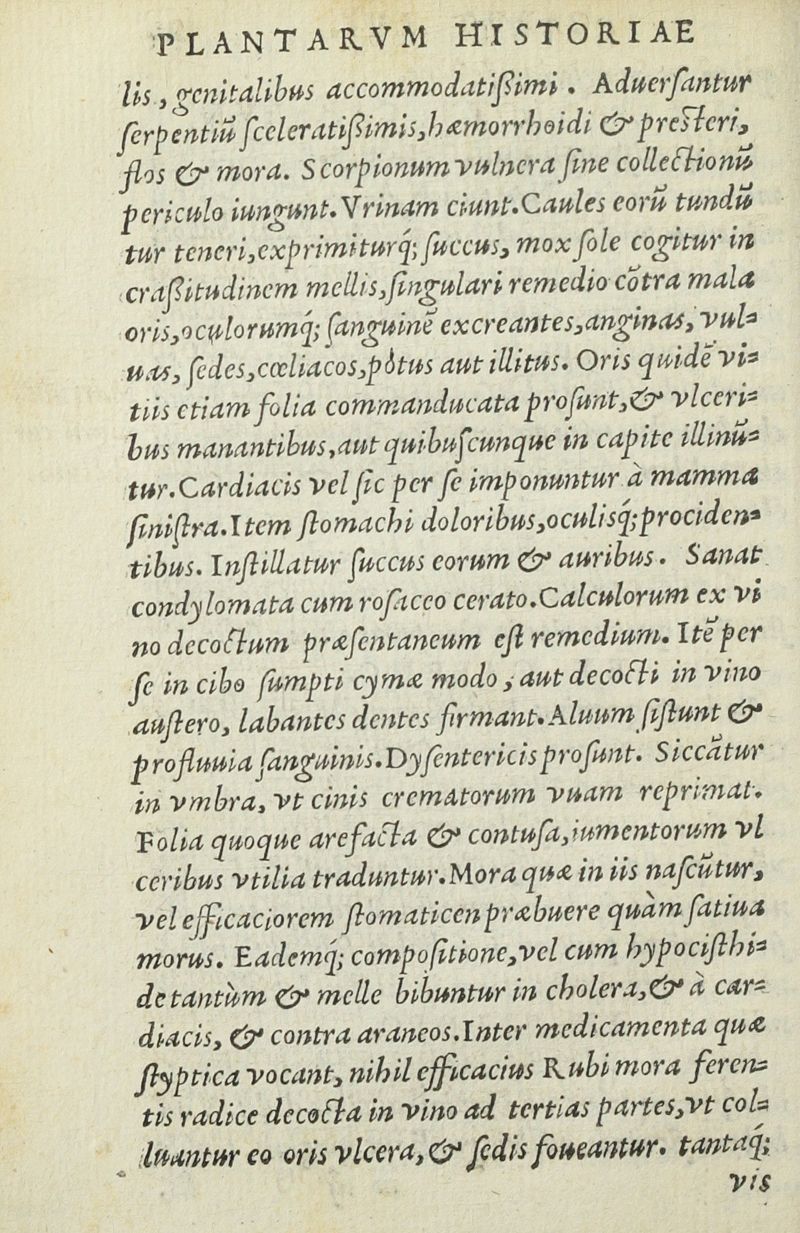 PLANTARVM HISTORIAE
lis, genitalibus accommodatißimi. Aduerſantur
ſerpentiũ ſceleratißimis, hæmorrhoidi & preſteri,
flos & mora. Scorpionum vulnera ſine collectionũ
periculo iungunt. Vrinam ciunt. Caules eorũ tundũ
tur teneri, exprimiturq́; ſuccus, mox ſole cogitur in
craßitudinem mellis, ſingulari remedio cõtra mala
oris, oculorumq́; ſanguinẽ excreantes, anginas, vul-
uas, ſedes, cœliacos, pòtus aut illitus. Oris quidẽ vi-
tiis etiam folia commanducata proſunt, & vlceri-
bus manantibus, aut quibuſcunque in capite illinũ-
tur. Cardiacis vel ſic per ſe imponuntur à mamma
ſiniſtra. Item ſtomachi doloribus, oculisq́; prociden-
tibus. Inſtillatur ſuccus eorum & auribus. Sanat
condylomata cum roſaceo cerato. Calculorum ex vi
no decoctum præſentaneum eſt remedium. Itẽ per
ſe in cibo ſumpti cymæ modo, aut decocti in vino
auſtero, labantes dentes firmant. Aluum ſiſtunt &
profluuia ſanguinis. Dyſentericis proſunt. Siccãtur
in vmbra, vt cinis crematorum vuam reprimat.
Folia quoque arefacta & contuſa, iumentorum vl
ceribus vtilia traduntur. Mora quæ in iis naſcũtur,
vel efficaciorem ſtomaticen præbuere quàm ſatiua
morus. Eademq́; compoſitione, vel cum hypociſthi-
de tantùm & melle bibuntur in cholera, & à car-
diacis, & contra araneos. Inter medicamenta quæ
ſtyptica vocant, nihil efficacius Rubi mora feren-
tis radice decocta in vino ad tertias partes, vt col-
luantur eo oris vlcera, & ſedis foueantur. tantaq́;
vis